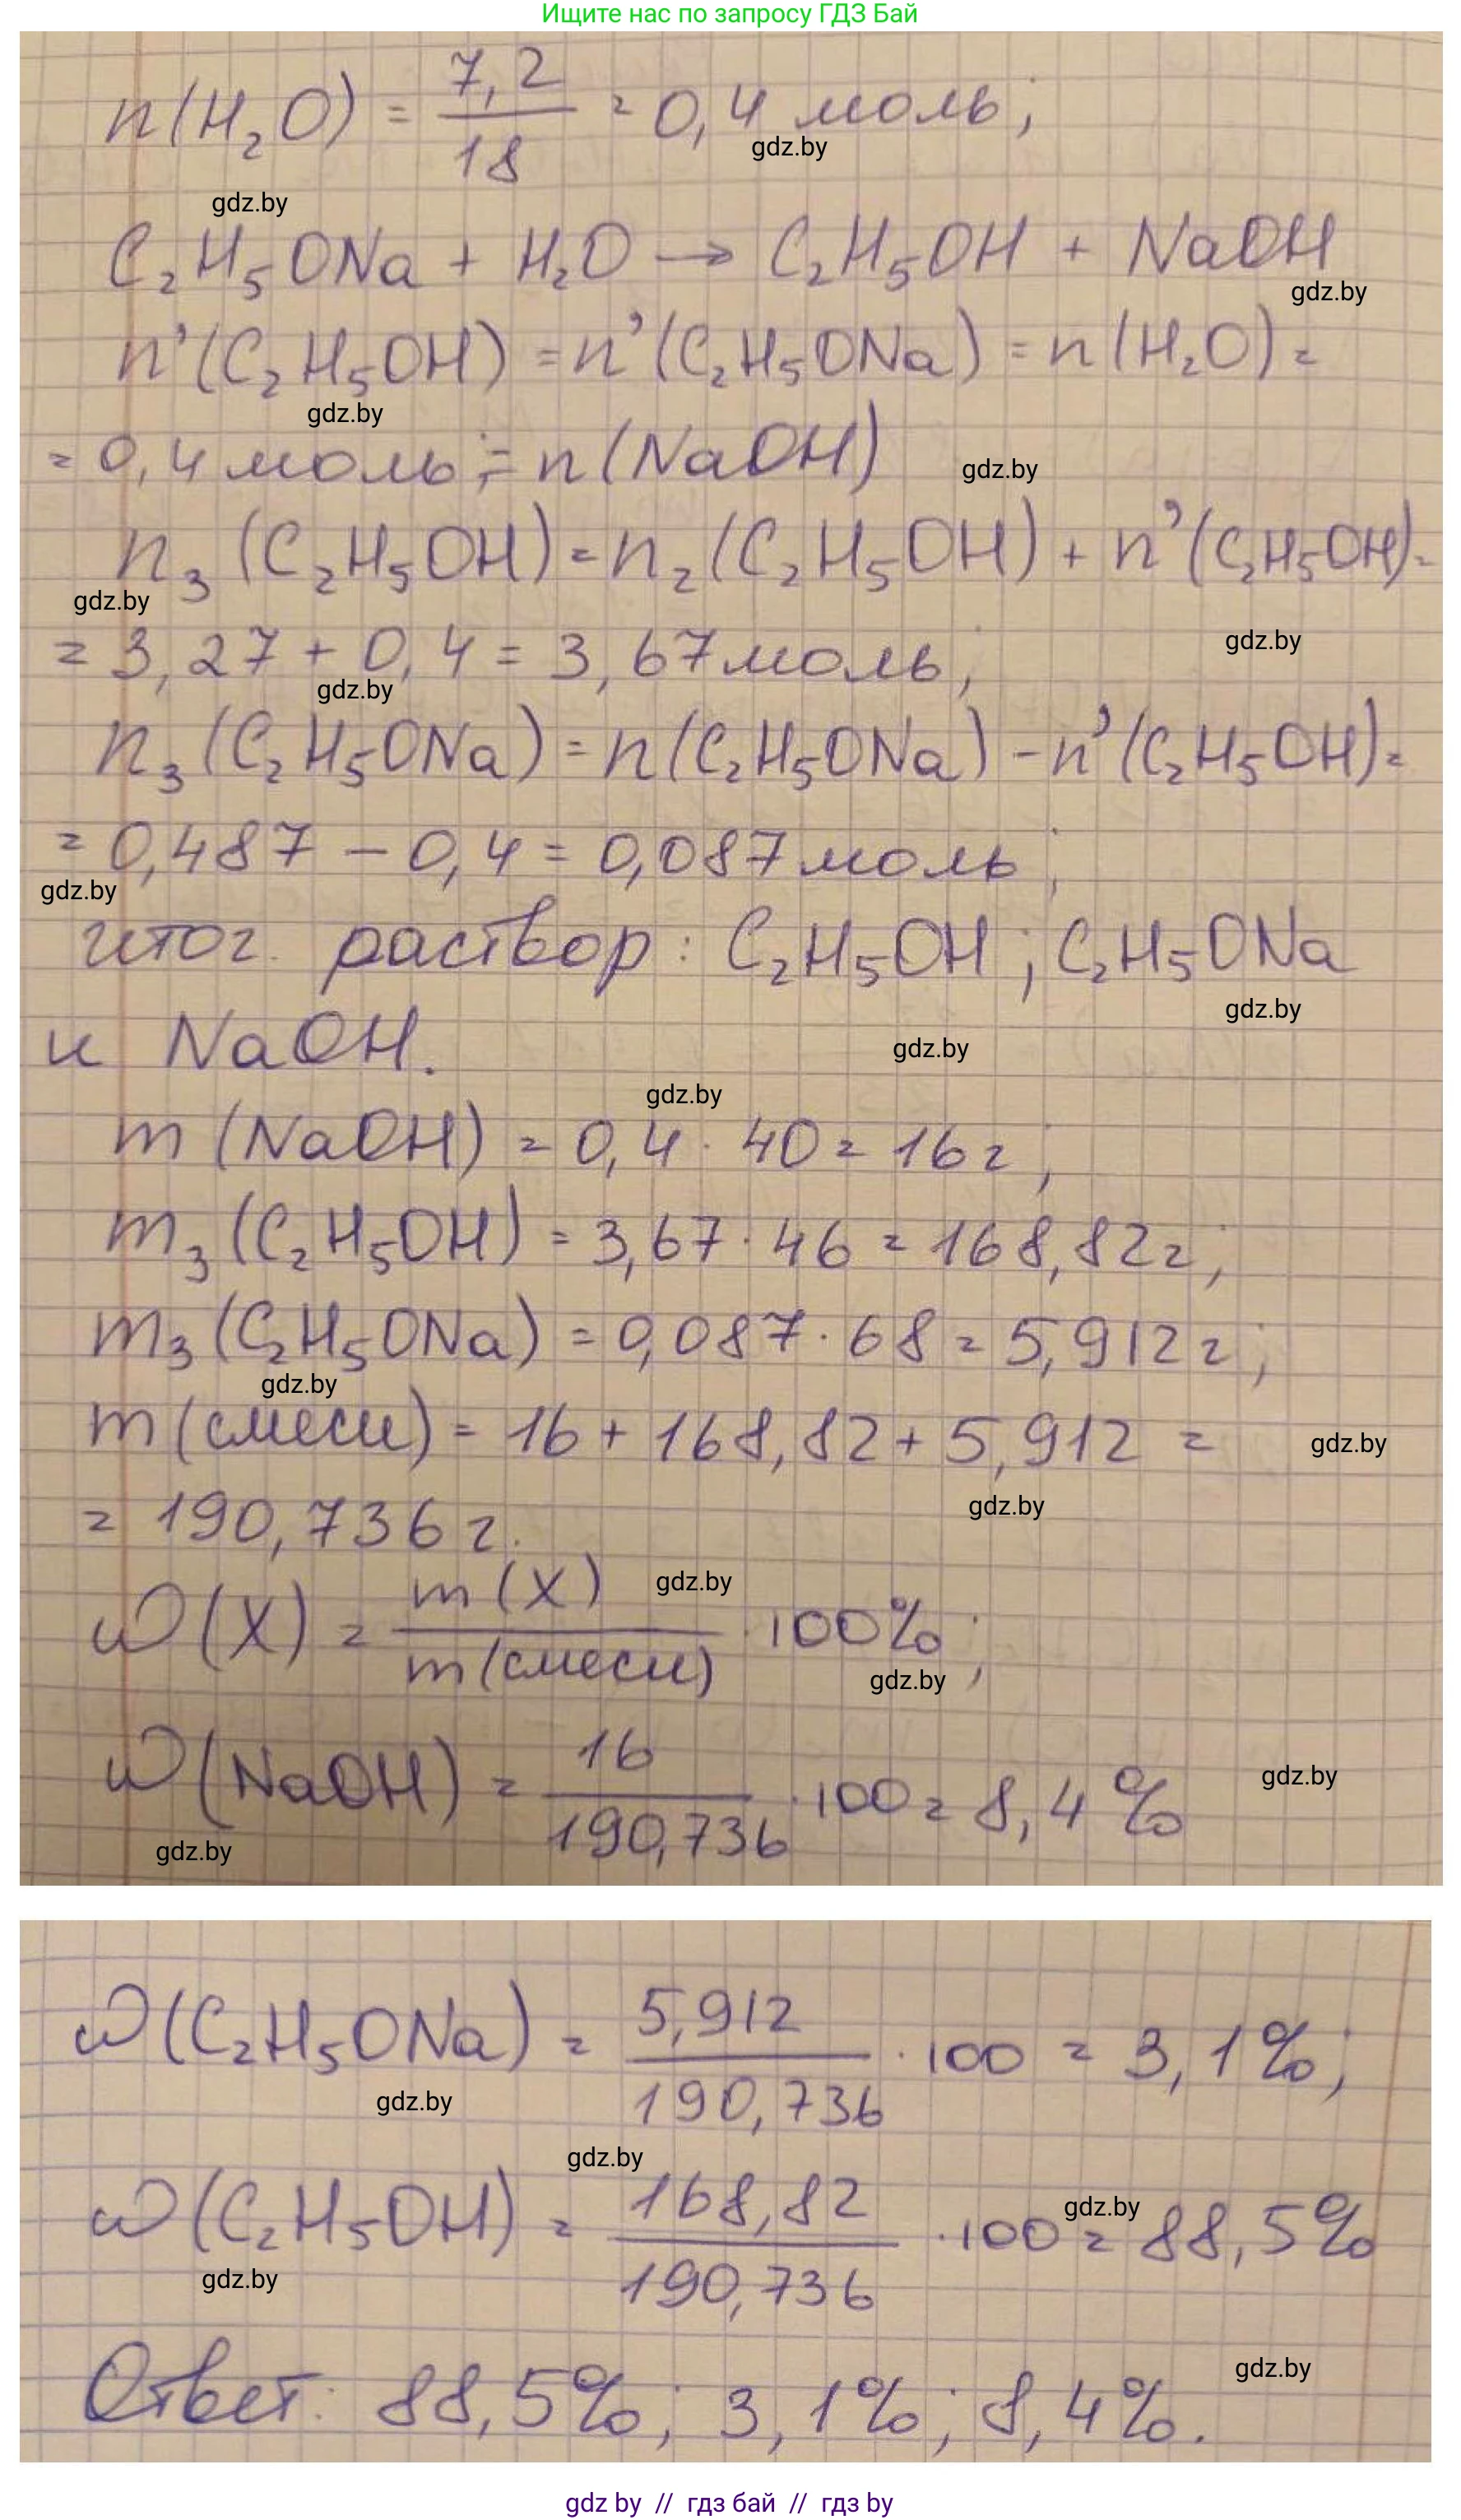 Ищите нас по запросу ГДЗ Бай
n(H₂O) = 7,2/18 = 0,4 моль;
gdz.by
gdz.by
C₂H₅ONa + H₂O → C₂H₅OH + NaOH
gdz.by
n'(C₂H₅OH) = n'(C₂H₅ONa) = n(H₂O) =
gdz.by
= 0,4 моль; = n(NaOH)
gdz.by
n₃(C₂H₅OH) = n₂(C₂H₅OH) + n'(C₂H₅OH) =
gdz.by
= 3,27 + 0,4 = 3,67 моль;
gdz.by
gdz.by
n₃(C₂H₅ONa) = n(C₂H₅ONa) - n'(C₂H₅OH) =
= 0,487 - 0,4 = 0,087 моль;
gdz.by
итог. раствор: C₂H₅OH; C₂H₅ONa
gdz.by
и NaOH.
gdz.by
gdz.by
m(NaOH) = 0,4 · 40 = 16 г;
m₃(C₂H₅OH) = 3,67 · 46 = 168,82 г;
m₃(C₂H₅ONa) = 0,087 · 68 = 5,912 г;
gdz.by
m(смеси) = 16 + 168,82 + 5,912 =
gdz.by
gdz.by
= 190,736 г.
ω(X) = m(X)/m(смеси) · 100%;
gdz.by
gdz.by
ω(NaOH) = 16/190,736 · 100 = 8,4%
gdz.by
gdz.by
ω(C₂H₅ONa) = 5,912/190,736 · 100 = 3,1%;
gdz.by
gdz.by
ω(C₂H₅OH) = 168,82/190,736 · 100 = 88,5%
gdz.by
gdz.by
Ответ: 88,5%; 3,1%; 8,4%.
gdz.by
gdz by // гдз бай // гдз by